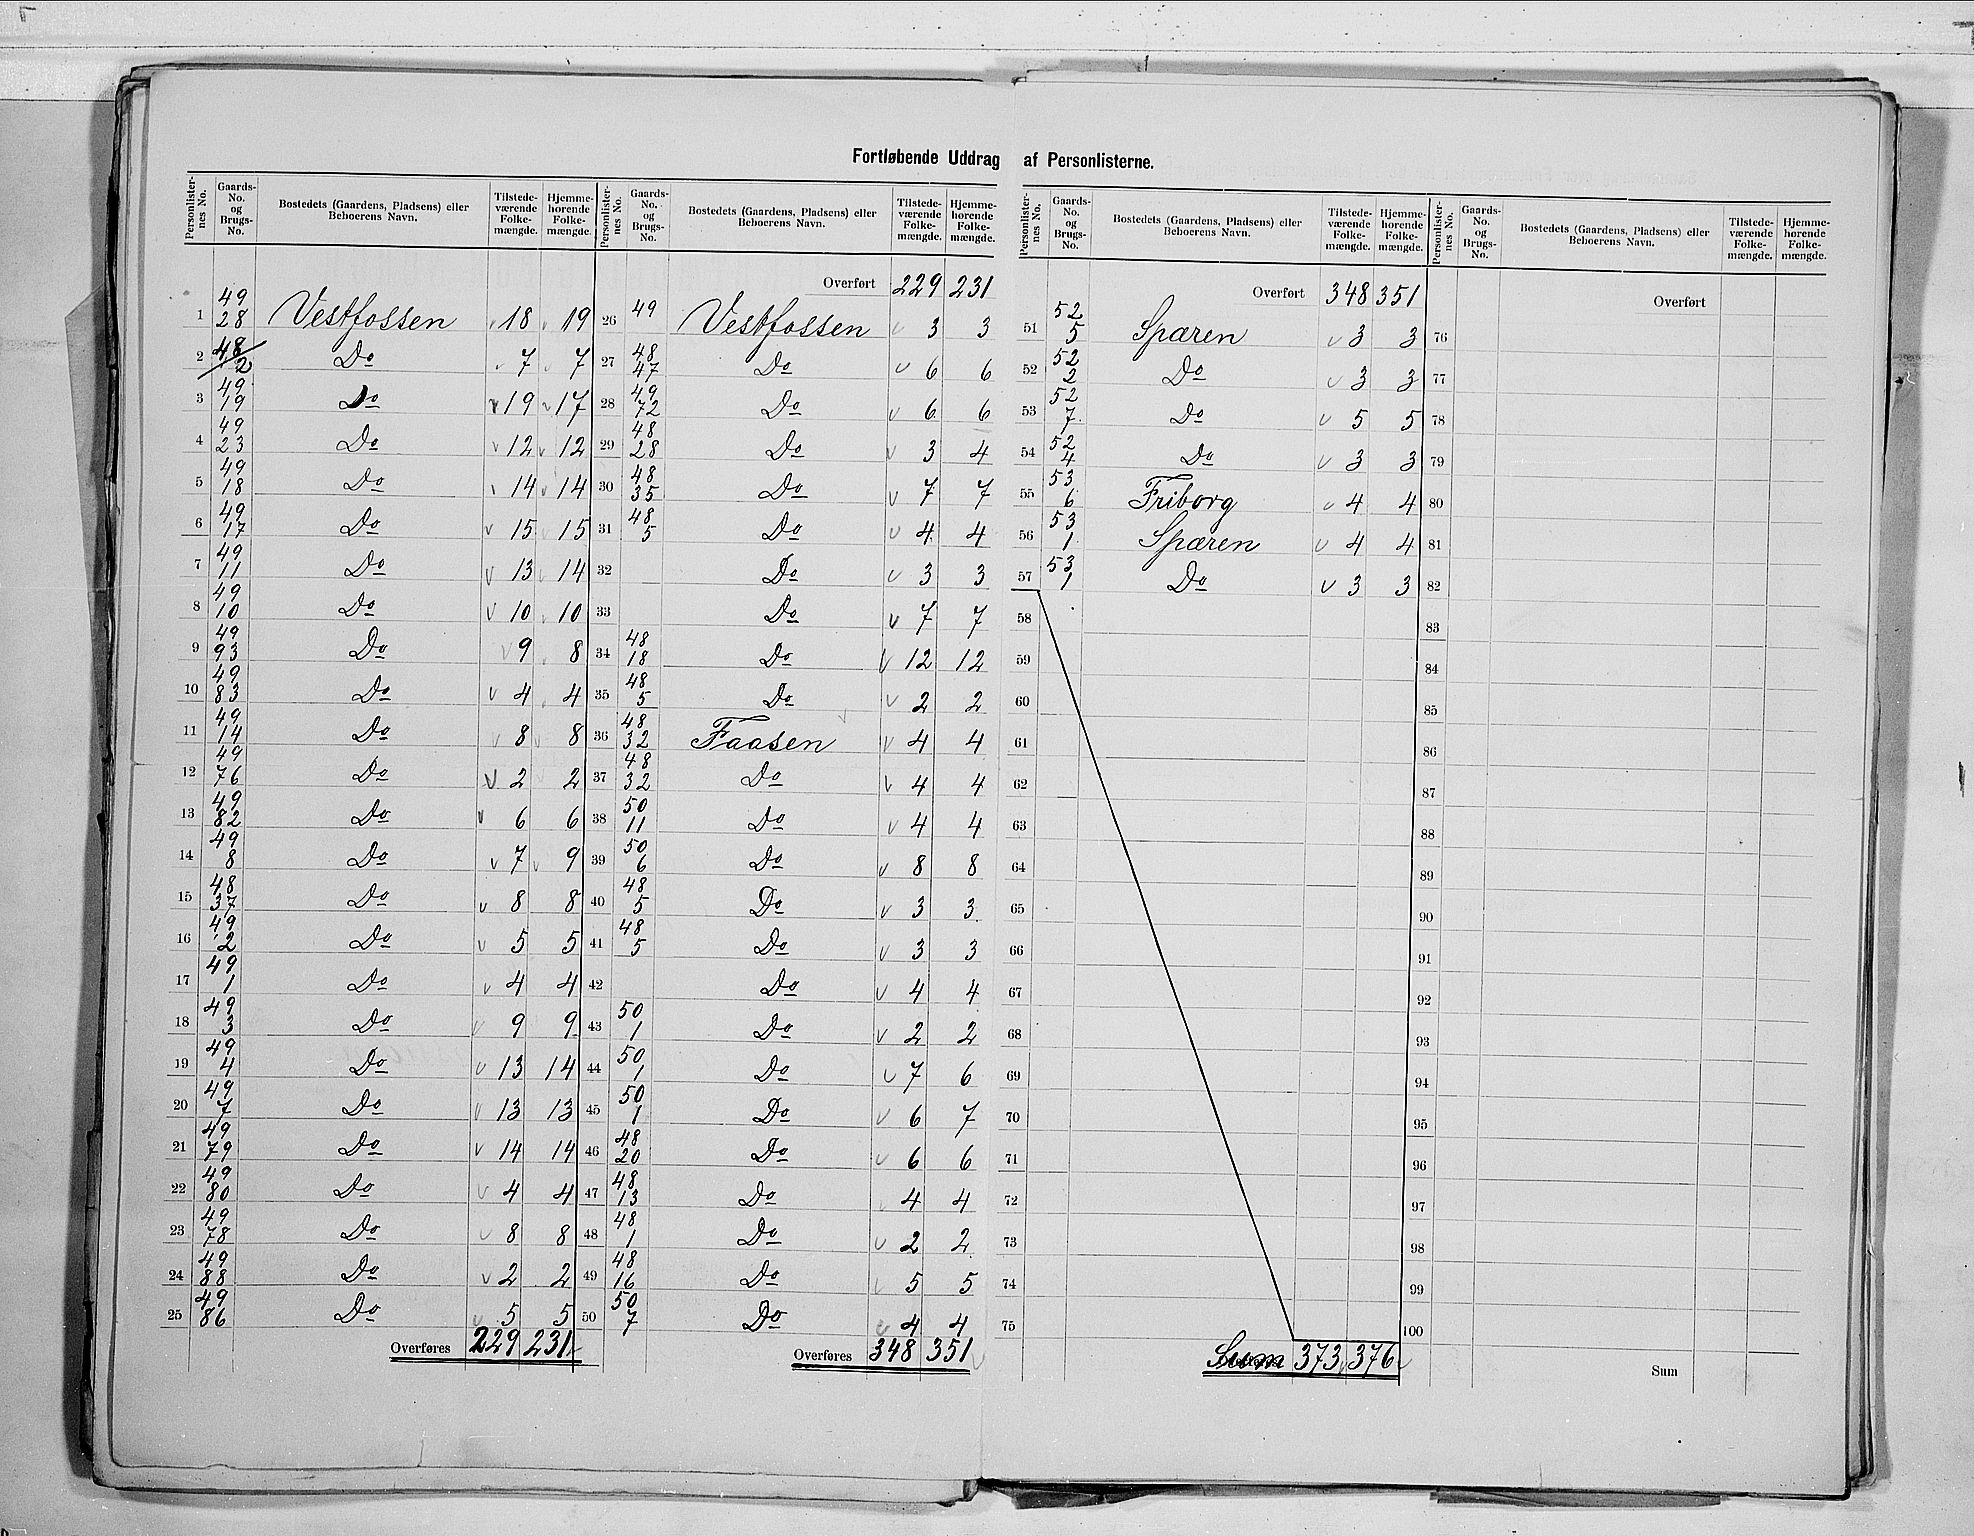 Fortløbende Uddrag af Personlisterne.
Personlister-nes No. | Gaards-No. og Brugs-No. | Bostedets (Gaardens, Pladsens) eller Beboerens Navn. | Tilstede-værende Folke-mængde. | Hjemme-hørende Folke-mængde.
1 | 49 28 | Vestfossen | 18 | 19
2 | 48/2 | Do | 7 | 7
3 | 49 19 | Do | 19 | 17
4 | 49 23 | Do | 12 | 12
5 | 49 18 | Do | 14 | 14
6 | 49 17 | Do | 15 | 15
7 | 49 11 | Do | 13 | 14
8 | 49 10 | Do | 10 | 10
9 | 49 93 | Do | 9 | 8
10 | 49 83 | Do | 4 | 4
11 | 49 14 | Do | 8 | 8
12 | 49 76 | Do | 2 | 2
13 | 49 82 | Do | 6 | 6
14 | 49 8 | Do | 7 | 9
15 | 48 37 | Do | 8 | 8
16 | 49 2 | Do | 5 | 5
17 | 49 1 | Do | 4 | 4
18 | 49 3 | Do | 9 | 9
19 | 49 4 | Do | 13 | 14
20 | 49 7 | Do | 13 | 13
21 | 49 79 | Do | 14 | 14
22 | 49 80 | Do | 4 | 4
23 | 49 78 | Do | 8 | 8
24 | 49 88 | Do | 2 | 2
25 | 49 86 | Do | 5 | 5
Overføres 229 231
Personlister-nes No. | Gaards-No. og Brugs-No. | Bostedets (Gaardens, Pladsens) eller Beboerens Navn. | Tilstede-værende Folke-mængde. | Hjemme-hørende Folke-mængde.
Overført 229 231
26 | 49 | Vestfossen | 3 | 3
27 | 48 47 | Do | 6 | 6
28 | 49 72 | Do | 6 | 6
29 | 48 28 | Do | 3 | 4
30 | 48 35 | Do | 7 | 7
31 | 48 5 | Do | 4 | 4
32 | Do | 3 | 3
33 | Do | 7 | 7
34 | 48 18 | Do | 12 | 12
35 | 48 5 | Do | 2 | 2
36 | 48 32 | Faasen | 4 | 4
37 | 48 32 | Do | 4 | 4
38 | 50 11 | Do | 4 | 4
39 | 50 6 | Do | 8 | 8
40 | 48 5 | Do | 3 | 3
41 | 48 5 | Do | 3 | 3
42 | Do | 4 | 4
43 | 50 1 | Do | 2 | 2
44 | 50 1 | Do | 7 | 6
45 | 50 1 | Do | 6 | 7
46 | 48 20 | Do | 6 | 6
47 | 48 13 | Do | 4 | 4
48 | 48 1 | Do | 2 | 2
49 | 48 16 | Do | 5 | 5
50 | 50 7 | Do | 4 | 4
Overføres 348 351
Personlister-nes No. | Gaards-No. og Brugs-No. | Bostedets (Gaardens, Pladsens) eller Beboerens Navn. | Tilstede-værende Folke-mængde. | Hjemme-hørende Folke-mængde.
Overført 348 351
51 | 52 5 | Spæren | 3 | 3
52 | 52 2 | Do | 3 | 3
53 | 52 7 | Do | 5 | 5
54 | 52 4 | Do | 3 | 3
55 | 53 6 | Friborg | 4 | 4
56 | 53 1 | Spæren | 4 | 4
57 | 53 1 | Do | 3 | 3
58
59
60
61
62
63
64
65
66
67
68
69
70
71
72
73
74
75
Sum 373 376
Personlister-nes No. | Gaards-No. og Brugs-No. | Bostedets (Gaardens, Pladsens) eller Beboerens Navn. | Tilstede-værende Folke-mængde. | Hjemme-hørende Folke-mængde.
Overført
76
77
78
79
80
81
82
83
84
85
86
87
88
89
90
91
92
93
94
95
96
97
98
99
100
Sum